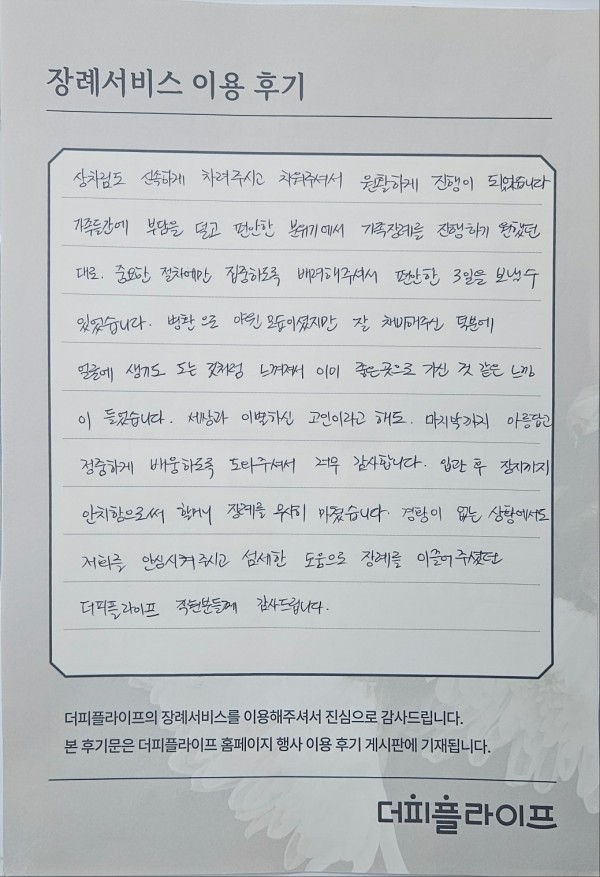 장례서비스 이용 후기
상차림도 신속하게 차려주시고 채워주셔서 원활하게 진행이 되었습니다
가족들간에 부담을 덜고 편안한 분위기에서 가족장례를 진행하기 원했던
대로. 중요한 절차에만 집중하도록 배려해주셔서 편안한 3일을 보낼 수
있었습니다. 병환으로 야윈 모습이셨지만 잘 채비해주신 덕분에
얼굴에 생기도 도는 것처럼 느껴져서 이미 좋은곳으로 가신 것 같은 느낌
이 들었습니다. 세상과 이별하신 고인이라고 해도. 마지막까지 아름답고
정중하게 배웅하도록 도와주셔서 너무 감사합니다. 입관 후 장지까지
안치함으로써 할머니 장례를 무사히 마쳤습니다. 경황이 없는 상황에서도
저희를 안심시켜주시고 섬세한 도움으로 장례를 이끌어주셨던
더피플라이프 직원분들께 감사드립니다.
더피플라이프의 장례서비스를 이용해주셔서 진심으로 감사드립니다.
본 후기문은 더피플라이프 홈페이지 행사 이용 후기 게시판에 기재됩니다.
더피플라이프